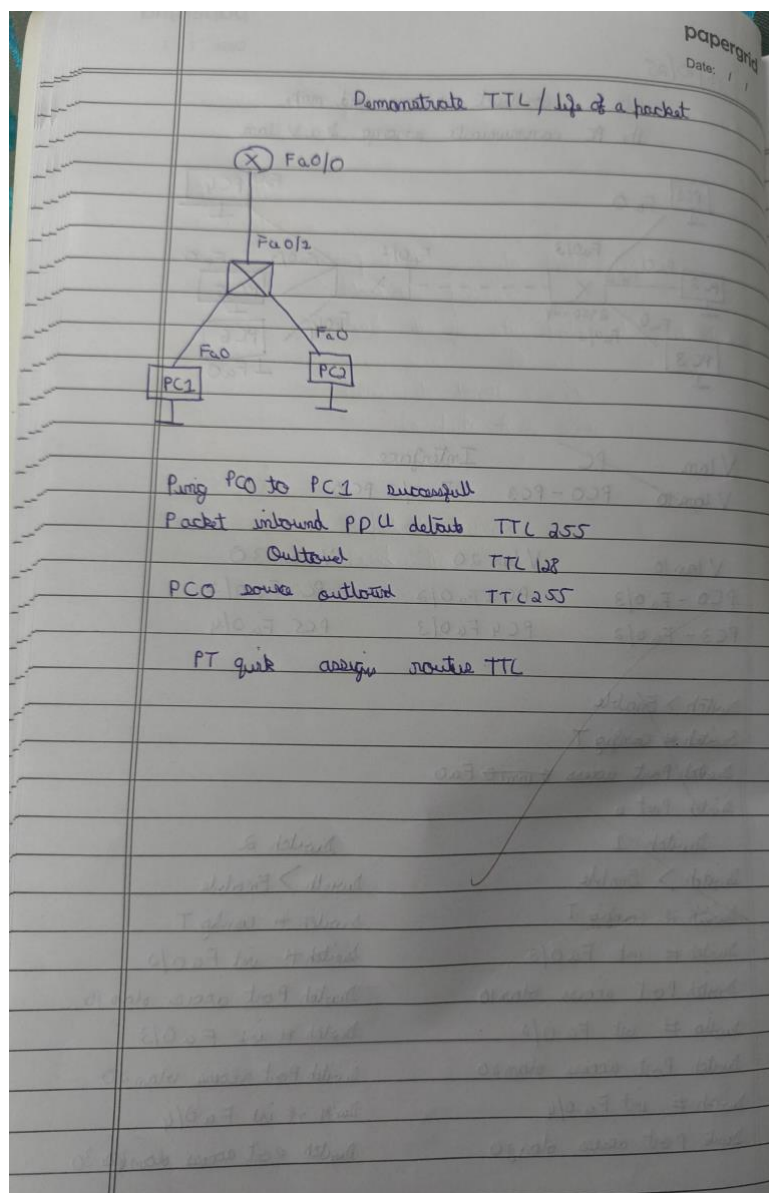 papergrid
Date: / /
Demonstrate TTL / life of a packet
X Fa0/0
Fa0/2
Fa0
Fa0
PC1
PC2
Ping PC0 to PC1 successfull
Packet inbound PDU details TTL 255
Outbound TTL 128
PC0 source outbound TTL 255
PT assign router TTL